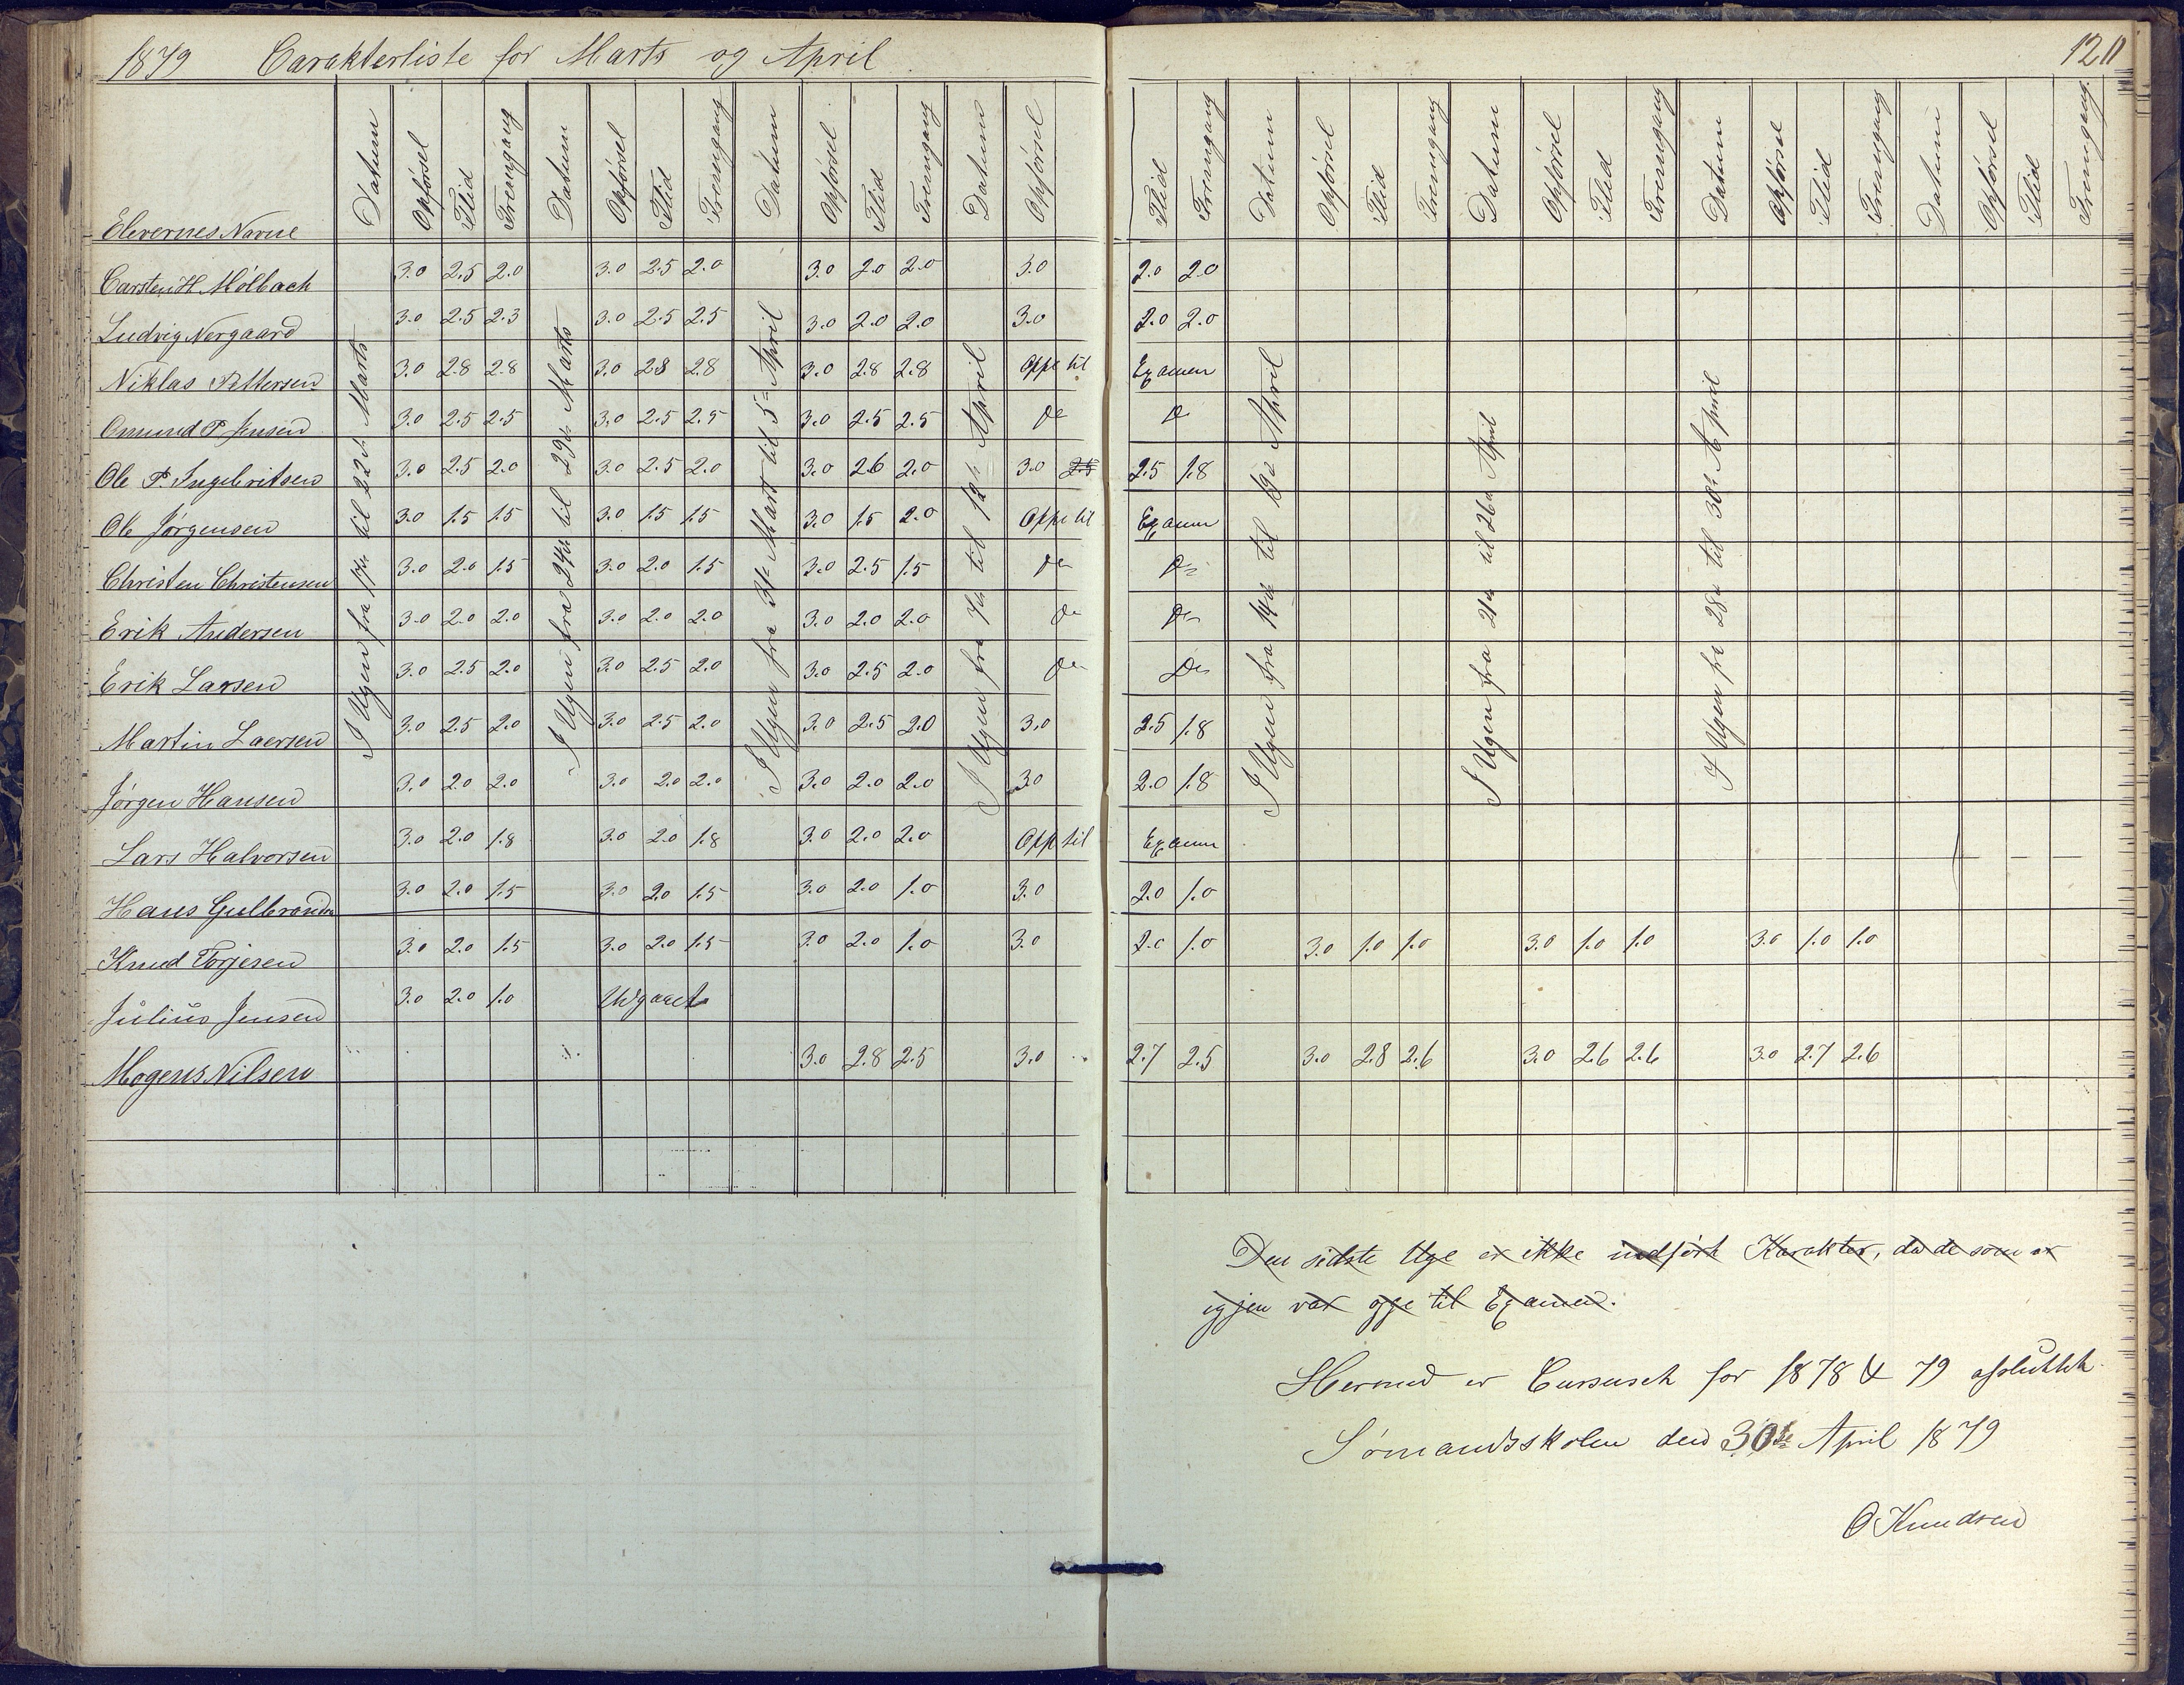 1879 Carakterliste for Marts og April
120
Elevernes Navne Datum Opførsel Flid Fremgang Datum Opførsel Flid Fremgang Datum Opførsel Flid Fremgang Datum Opførsel Flid Fremgang Datum Opførsel Flid Fremgang Datum Opførsel Flid Fremgang Datum Opførsel Flid Fremgang Datum Opførsel Flid Fremgang
I Ugen fra 17de til 22de Marts
I Ugen fra 24de til 29de Marts
I Ugen fra 31te Mart til 5te April
I Ugen fra 7de til 12te April
I Ugen fra 14de til 19de April
I Ugen fra 21de til 26de April
I Ugen fra 28de til 30te April
Carsten H. Mølbach 3.0 2.5 2.0 3.0 2.5 2.0 3.0 2.0 2.0 3.0 2.0 2.0
Ludvig Nergaard 3.0 2.5 2.3 3.0 2.5 2.5 3.0 2.0 2.0 3.0 2.0 2.0
Niklas Pettersen 3.0 2.8 2.8 3.0 2.8 2.8 3.0 2.8 2.8 Oppe til Examen
Omund P Jensen 3.0 2.5 2.5 3.0 2.5 2.5 3.0 2.5 2.5 Do Do
Ole P. Ingebritsen 3.0 2.5 2.0 3.0 2.5 2.0 3.0 2.6 2.0 3.0 2.5 2.5 1.8
Ole Jørgensen 3.0 1.5 1.5 3.0 1.5 1.5 3.0 1.5 2.0 Oppe til Examen
Christen Christensen 3.0 2.0 1.5 3.0 2.0 1.5 3.0 2.5 1.5 Do Do
Erik Andersen 3.0 2.0 2.0 3.0 2.0 2.0 3.0 2.0 2.0 Do Do
Erik Larsen 3.0 2.5 2.0 3.0 2.5 2.0 3.0 2.5 2.0 Do Do
Martin Laersen 3.0 2.5 2.0 3.0 2.5 2.0 3.0 2.5 2.0 3.0 2.5 1.8
Jørgen Hansen 3.0 2.0 2.0 3.0 2.0 2.0 3.0 2.0 2.0 3.0 2.0 1.8
Lars Halvorsen 3.0 2.0 1.8 3.0 2.0 1.8 3.0 2.0 2.0 Opp til Examen
Hans Gulbrandsen 3.0 2.0 1.5 3.0 2.0 1.5 3.0 2.0 1.0 3.0 2.0 1.0
Knud Torjesen 3.0 2.0 1.5 3.0 2.0 1.5 3.0 2.0 1.0 3.0 2.0 1.0 3.0 1.0 1.0 3.0 1.0 1.0 3.0 1.0 1.0
Julius Jensen 3.0 2.0 1.0 Udgaaet
Mogens Nilsen 3.0 2.8 2.5 3.0 2.7 2.5 3.0 2.8 2.6 3.0 2.6 2.6 3.0 2.7 2.6
Den sidste Uge er ikke indført Karakter, da de som er
igjen var oppe til Examen.
Hermed er Cursuset for 1878 & 79 afsluttet
Sømandsskolen den 30te April 1879
O Knudsen